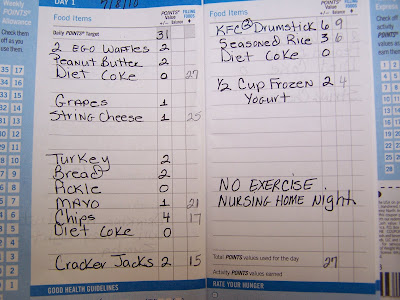 Weekly POINTS Allowance
Check them off as you use them.
DAY 1 7/8/10
Food Items POINTS Value FILLING FOODS
+/- Balance
Daily POINTS Target 31
2 EGO WAFFLES 2
PEANUT BUTTER 2
DIET COKE 0 27
GRAPES 1
STRING CHEESE 1 25
TURKEY 2
BREAD 2
PICKLE 0
MAYO 1 21
Chips 4 17
DIET COKE 0
CRACKER JACKS 2 15
GOOD HEALTH GUIDELINES
Food Items POINTS Value FILLING FOODS
+/- Balance
KFC 2 DRUMSTICK 6 9
SEASONED RICE 3 6
DIET COKE 0
1/2 CUP FROZEN 2 4
YOGURT
NO EXERCISE.
NURSING HOME Night.
Total POINTS values used for the day 27
Activity POINTS values earned
RATE YOUR HUNGER
Express
Check them off as you earn them.